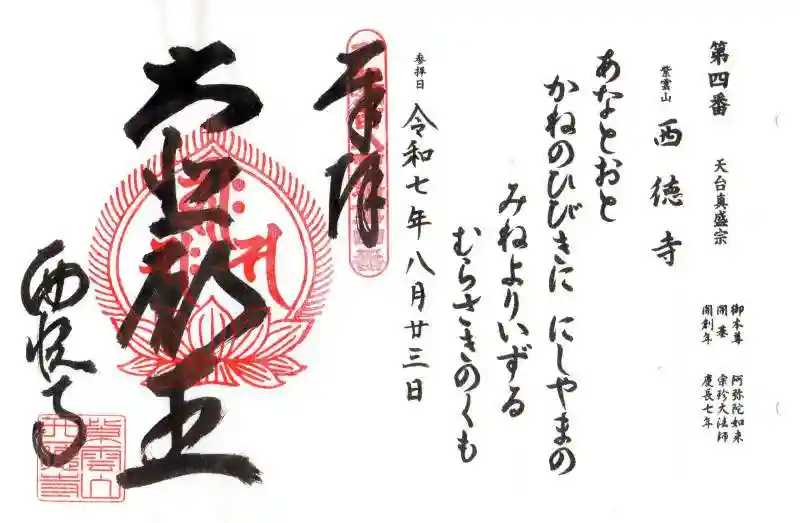 第四番 天台真盛宗
御本尊 阿弥陀如来
開基 宗珍大法師
開創年 慶長七年
紫雲山 西徳寺
あなとおと
かねのひびきに にしやまの
みねよりいずる
むらさきのくも
参拝日 令和七年八月廿三日
奉拝
西徳寺
紫雲山
西徳寺